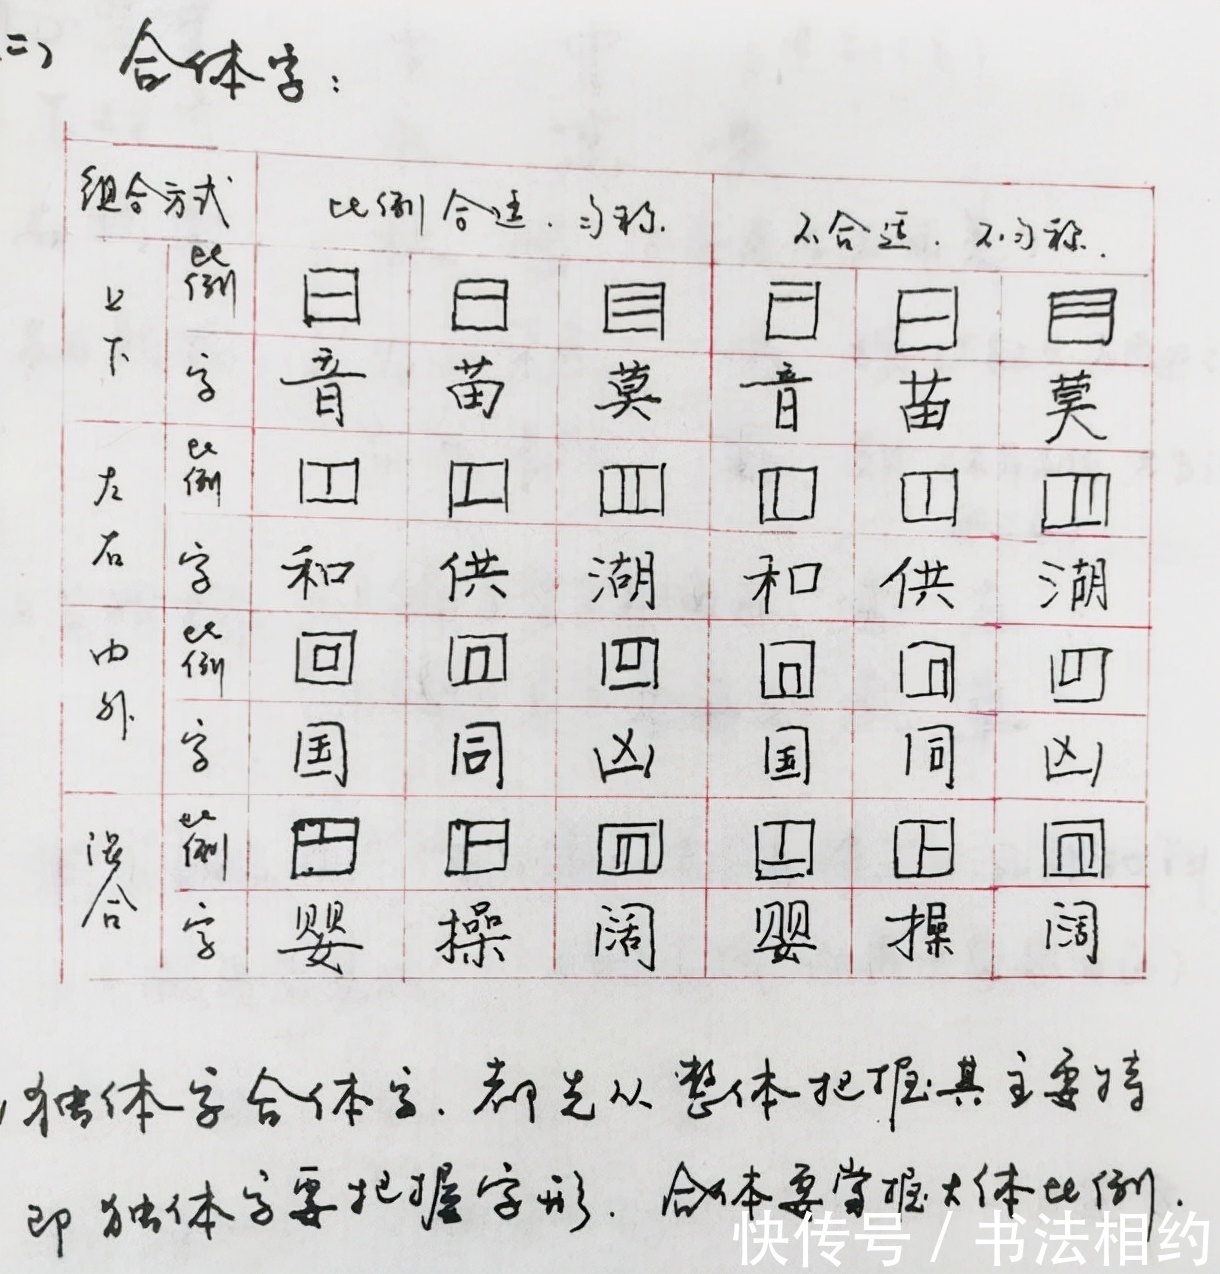 二、 合体字：
组合方式 比例合适．匀称． 不合适．不匀称．
上下 比例
字 音 苗 莫 音 苗 莫
左右 比例
字 和 供 湖 和 供 湖
内外 比例
字 国 同 凶 国 同 凶
混合 比例
字 婴 操 阔 婴 操 阔
独体字合体字．都先从整体把握其主要特
即独体字要把握字形．合体要掌握大体比例．
快传号 / 书法相约